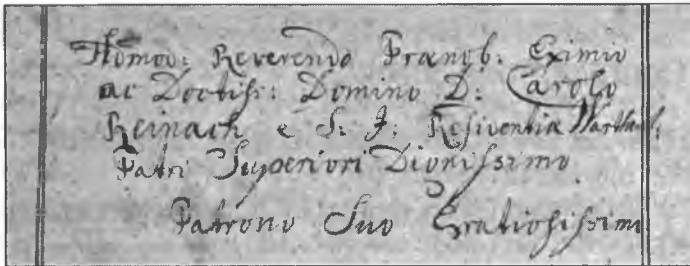 Admod: Reverendo Prænob: Eximio
ac Doctiss: Domino D: Carolo
Reinach e S: J: Residentiæ
Patri Superiori Dignissimo
Patrono Suo Gratiosissimo